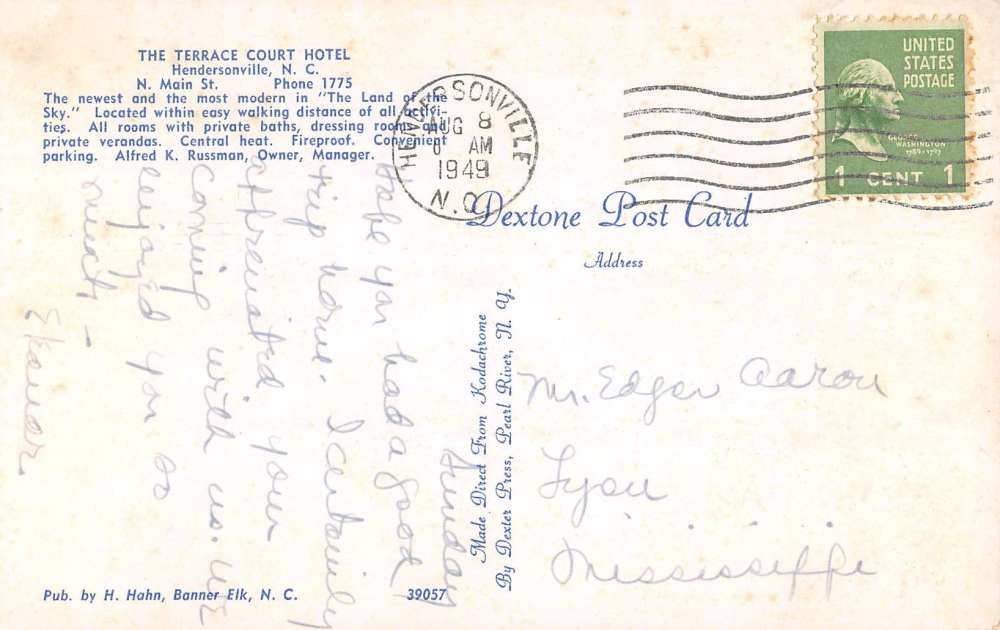 THE TERRACE COURT HOTEL
Hendersonville, N. C.
N. Main St. Phone 1775
The newest and the most modern in "The Land of the
Sky." Located within easy walking distance of all activi-
ties. All rooms with private baths, dressing rooms and
private verandas. Central heat. Fireproof. Convenient
parking. Alfred K. Russman, Owner, Manager.
HENDERSONVILLE
AUG 8
AM
1949
N.C.
UNITED
STATES
POSTAGE
GEORGE
WASHINGTON
1789-1797
1 CENT 1
Dextone Post Card
Address
Made Direct From Kodachrome
By Dexter Press, Pearl River, N. Y.
Sunday
Hope you had a good
trip home. I certainly
appreciated your
coming with us. We
enjoyed you so
much, -
Mr. Edgar Aaron
Lyon
Mississippi
Pub. by H. Hahn, Banner Elk, N. C.
39057